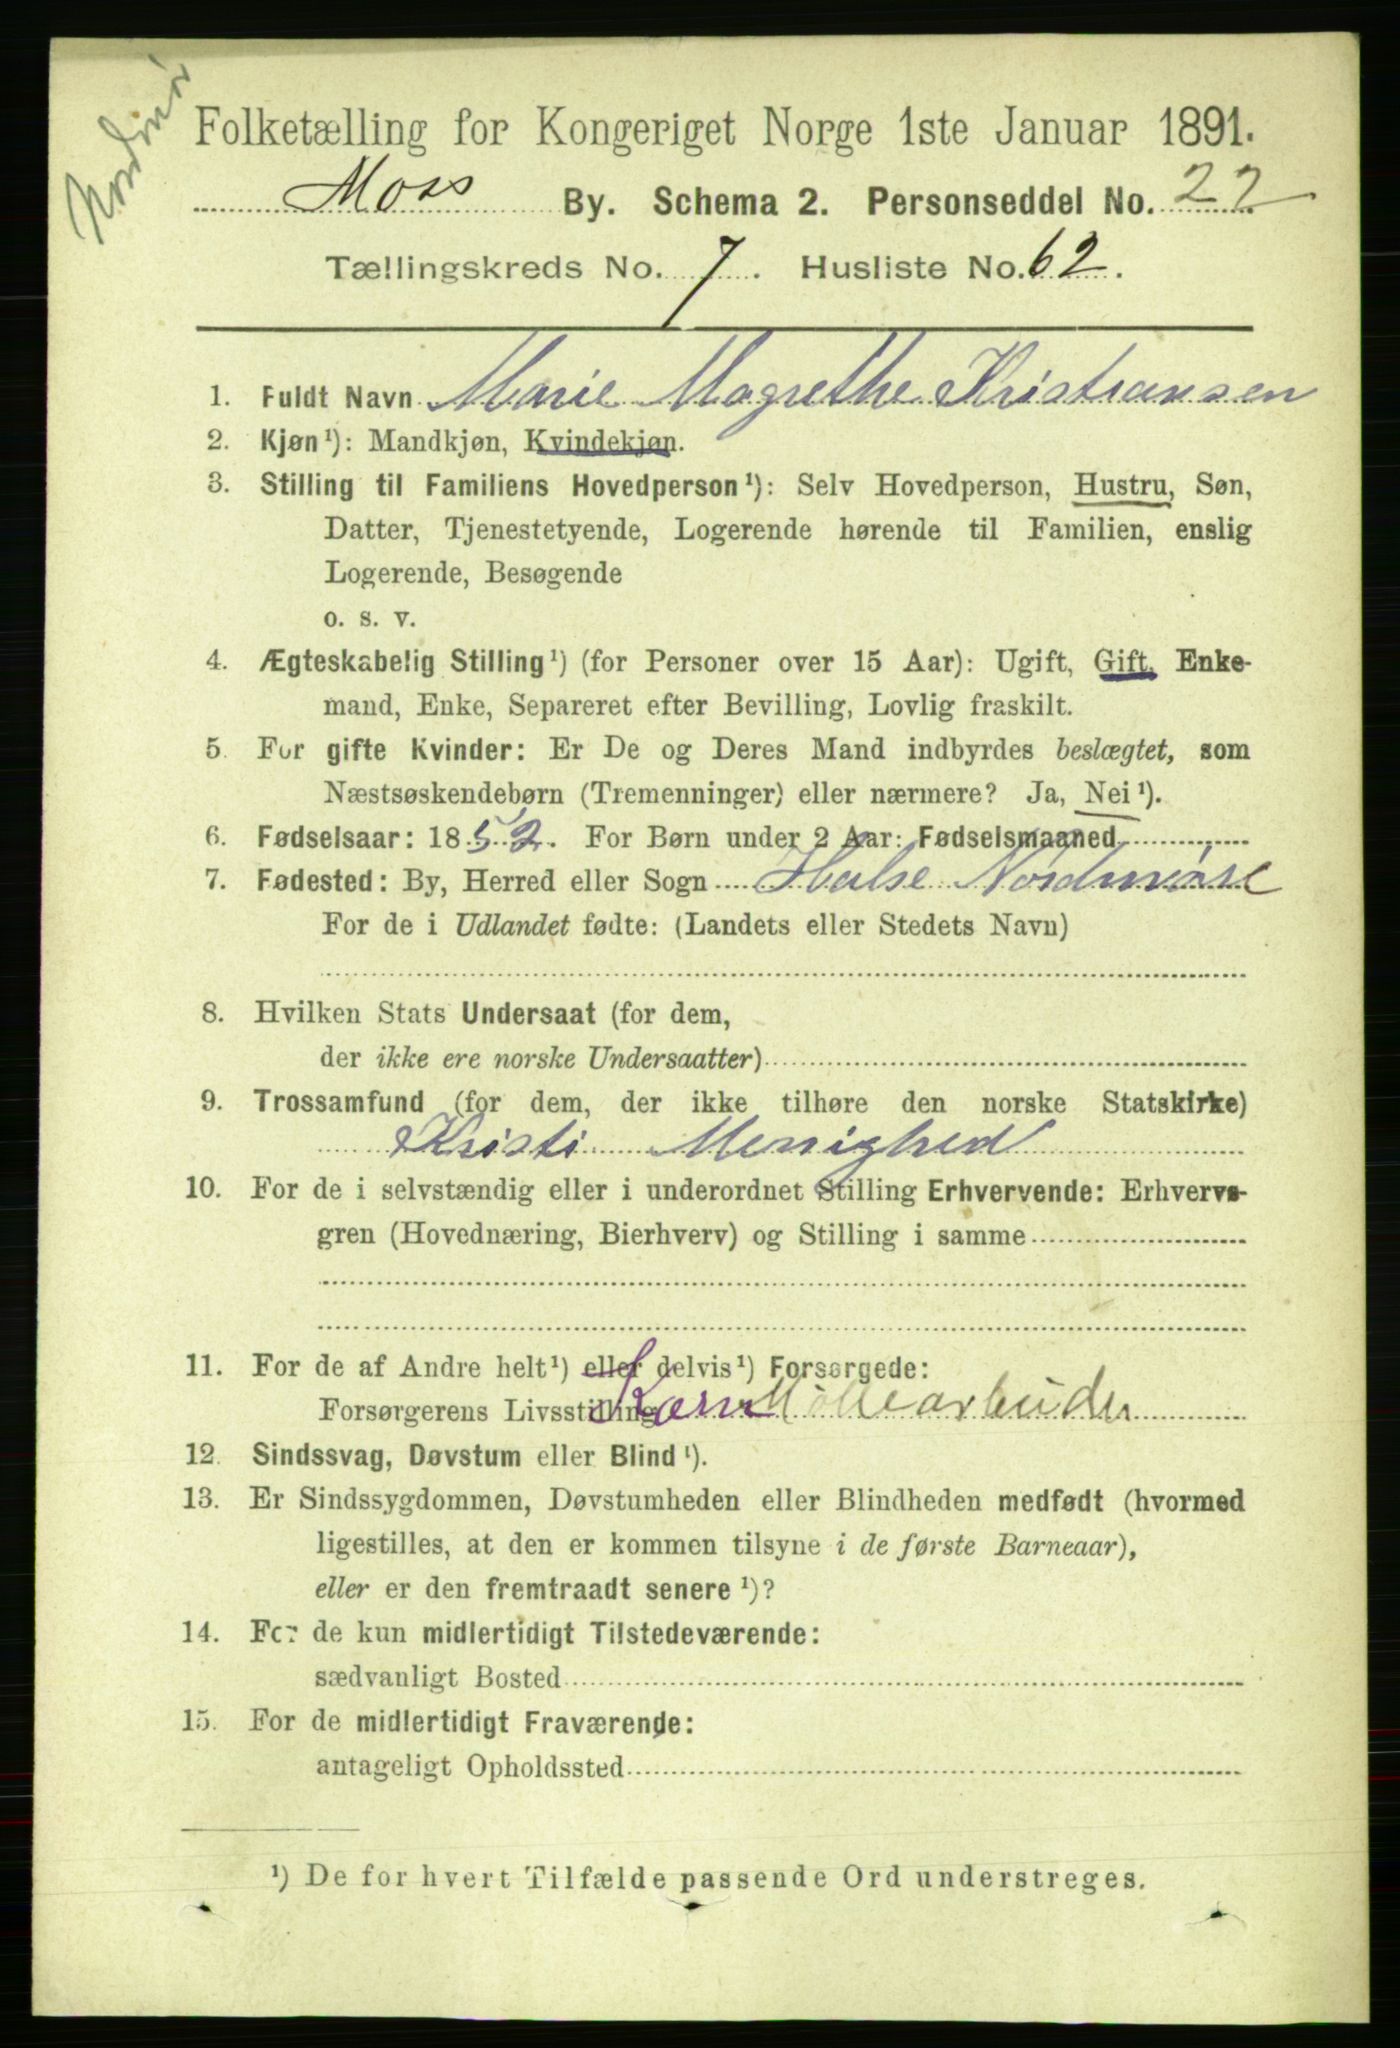 Nordmør
Folketælling for Kongeriget Norge 1ste Januar 1891.
Moss By. Schema 2. Personseddel No. 22
Tællingskreds No. 7. Husliste No. 62.
1. Fuldt Navn Marie Magrethe Kristiansen
2. Kjøn¹): Mandkjøn, Kvindekjøn.
3. Stilling til Familiens Hovedperson¹): Selv Hovedperson, Hustru, Søn,
Datter, Tjenestetyende, Logerende hørende til Familien, enslig
Logerende, Besøgende
o. s. v.
4. Ægteskabelig Stilling¹) (for Personer over 15 Aar): Ugift, Gift, Enke-
mand, Enke, Separeret efter Bevilling, Lovlig fraskilt.
5. For gifte Kvinder: Er De og Deres Mand indbyrdes beslægtet, som
Næstsøskendebørn (Tremenninger) eller nærmere? Ja, Nei¹).
6. Fødselsaar: 1852. For Børn under 2 Aar: Fødselsmaaned
7. Fødested: By, Herred eller Sogn Halse Nordmøre
For de i Udlandet fødte: (Landets eller Stedets Navn)
8. Hvilken Stats Undersaat (for dem,
der ikke ere norske Undersaatter)
9. Trossamfund (for dem, der ikke tilhøre den norske Statskirke)
Kristi Menighed
10. For de i selvstændig eller i underordnet Stilling Erhvervende: Erhvervs-
gren (Hovednæring, Bierhverv) og Stilling i samme
11. For de af Andre helt¹) eller delvis¹) Forsørgede:
Forsørgerens Livsstilling Korn Møllearbeider
12. Sindssvag, Døvstum eller Blind¹).
13. Er Sindssygdommen, Døvstumheden eller Blindheden medfødt (hvormed
ligestilles, at den er kommen tilsyne i de første Barneaar),
eller er den fremtraadt senere¹)?
14. For de kun midlertidigt Tilstedeværende:
sædvanligt Bosted
15. For de midlertidigt Fraværende:
antageligt Opholdssted
¹) De for hvert Tilfælde passende Ord understreges.